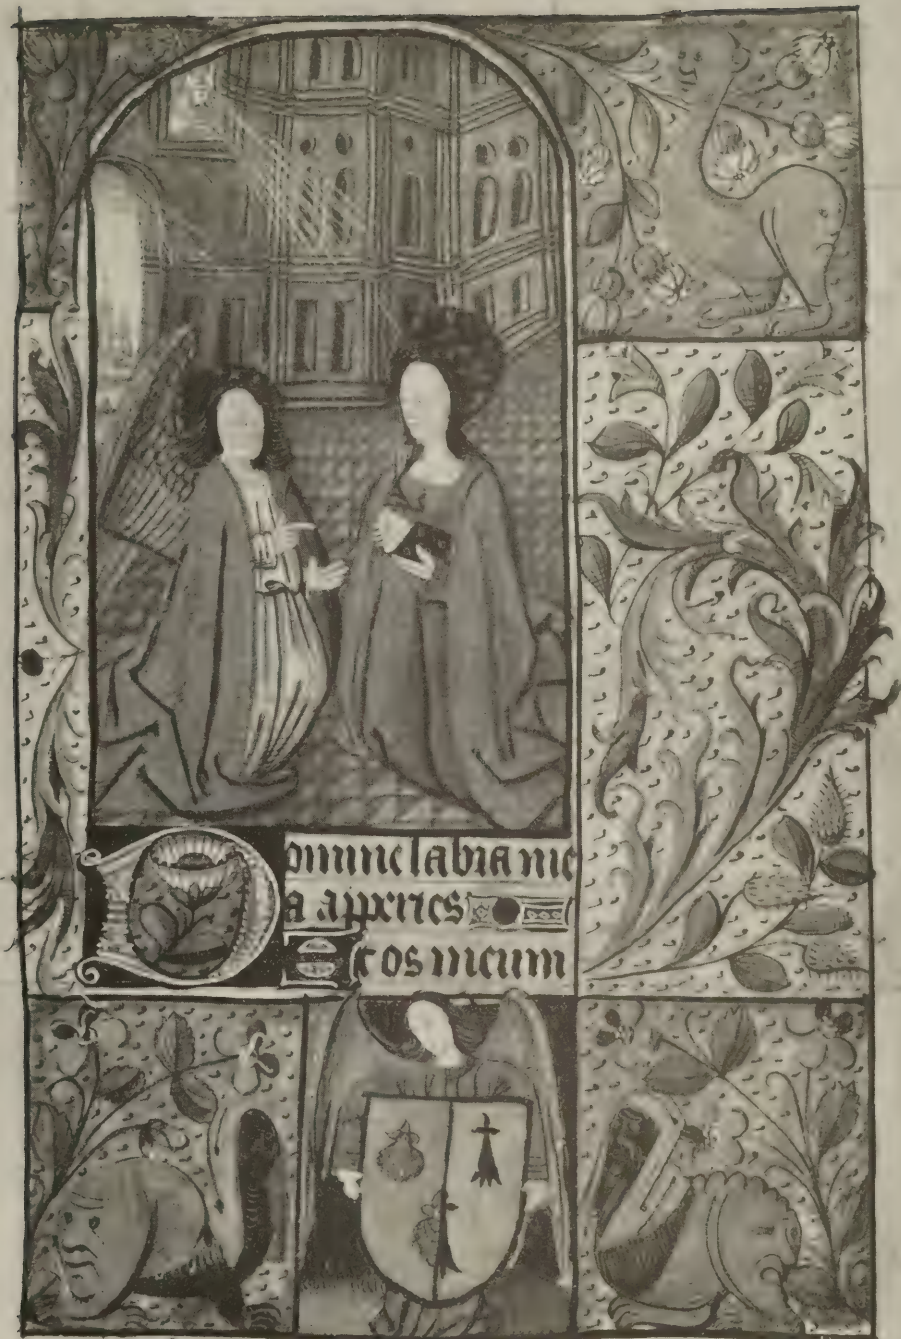 Domine labia me
a apperies
Et os meum